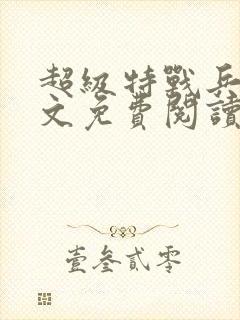 超級特戰兵
文免費閱讀
壹叁貳零